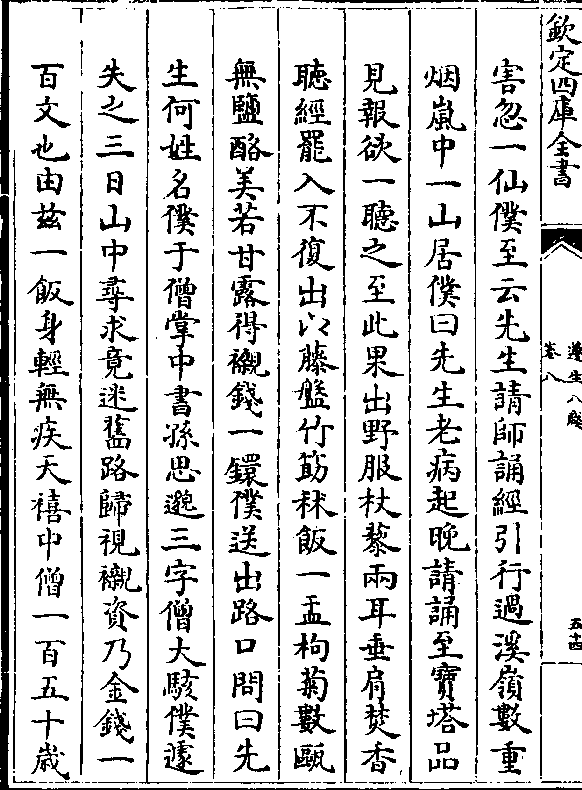 欽定四庫全書
遵生八牋
卷八
五十四
害忽一仙僕至云先生請師誦經引行過溪嶺數重
烟嵐中一山居僕曰先生老病起晚請誦至寶塔品
見報欲一聽之至此果出野服杖藜兩耳垂肩焚香
聽經罷入不復出以藤盤竹筯秫飯一盂枸菊數甌
無鹽酪美若甘露得襯錢一鐶僕送出路口問曰先
生何姓名僕于僧掌中書孫思邈三字僧大駭僕遽
失之三日山中尋求竟迷舊路歸視襯資乃金錢一
百文也由兹一飯身輕無疾天禧中僧一百五十歲